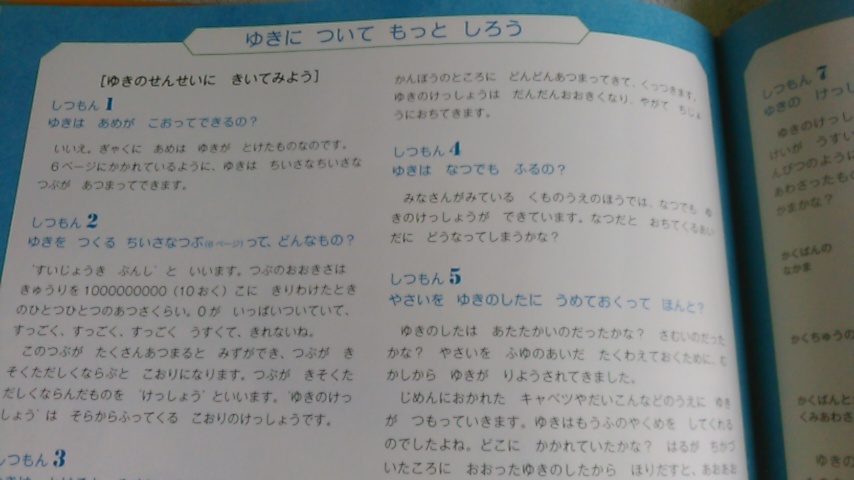 ゆきに ついて もっと しろう
[ゆきのせんせいに きいてみよう]
しつもん 1
ゆきは あめが こおってできるの?
いいえ。ぎゃくに あめは ゆきが とけたものなのです。
6ページにかかれているように、ゆきは ちいさなちいさな
つぶが あつまってできます。
しつもん 2
ゆきを つくる ちいさなつぶ(6ページ)って、どんなもの?
'すいじょうき ぶんし' と いいます。つぶのおおきさは
きゅうりを1000000000(10おく)こに きりわけたとき
のひとつひとつのあつさくらい。0が いっぱいついていて、
すっごく、すっごく、すっごく うすくて、きれないね。
このつぶが たくさんあつまると みずができ、つぶが き
そくただしくならぶと こおりになります。つぶが きそくた
だしくならんだものを 'けっしょう' といいます。'ゆきのけっ
しょう' は そらからふってくる こおりのけっしょうです。
しつもん 3
かんぼうのところに どんどんあつまってきて、くっつきます。
ゆきのけっしょうは だんだんおおきくなり、やがて ちじょ
うにおちてきます。
しつもん 4
ゆきは なつでも ふるの?
みなさんがみている くものうえのほうでは、なつでも ゆ
きのけっしょうが できています。なつだと おちてくるあい
だに どうなってしまうかな?
しつもん 5
やさいを ゆきのしたに うめておくって ほんと?
ゆきのしたは あたたかいのだったかな? さむいのだった
かな? やさいを ふゆのあいだ たくわえておくために、む
かしから ゆきが りようされてきました。
じめんにおかれた キャベツやだいこんなどのうえに ゆき
が つもっていきます。ゆきはもうふのやくめを してくれる
のでしたよね。どこに かかれていたかな? はるが ちかづ
いたころに おおったゆきのしたから ほりだすと、あおあお
しつもん 7
ゆきの けっし
ゆきのけっし
けいが うすい
んぴつのように
あわさったもの
がまかな?
かくばんの
なかま
かくちゅうの
かくばんと
くみあわさ
ゆきの